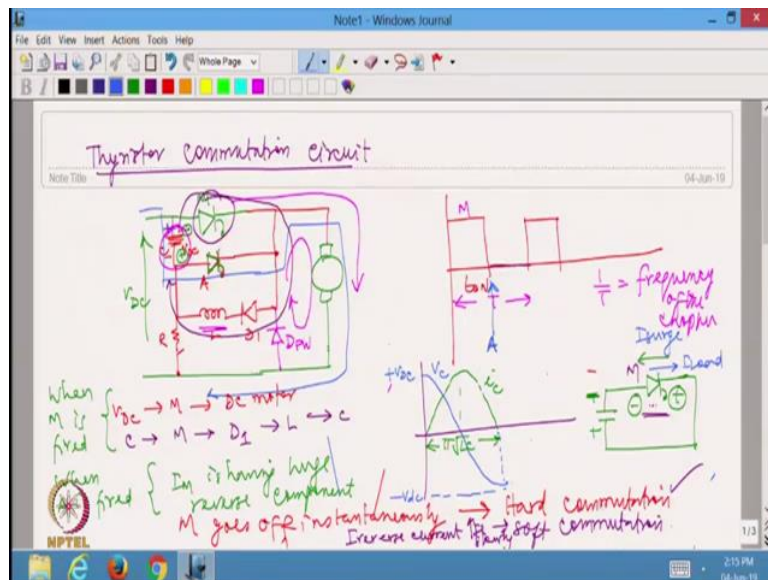 Note1 - Windows Journal
File Edit View Insert Actions Tools Help
Whole Page
B I
Thyristor commutation circuit
Note Title
04-Jun-19
M
A
VDC
R
L
D1
DFW
M
ton
T
A
1/T = frequency of the chopper
+VDC
VC
iC
π√LC
-Vdc
Isurge
M
Iload
When M is fired
VDC → M → DC motor
C → M → D1 → L ↔ C
When fired
IM is having huge reverse component
M goes off instantaneously → Hard commutation
Ireverse current → soft commutation
NPTEL
1/3
2:15 PM
04-Jun-19